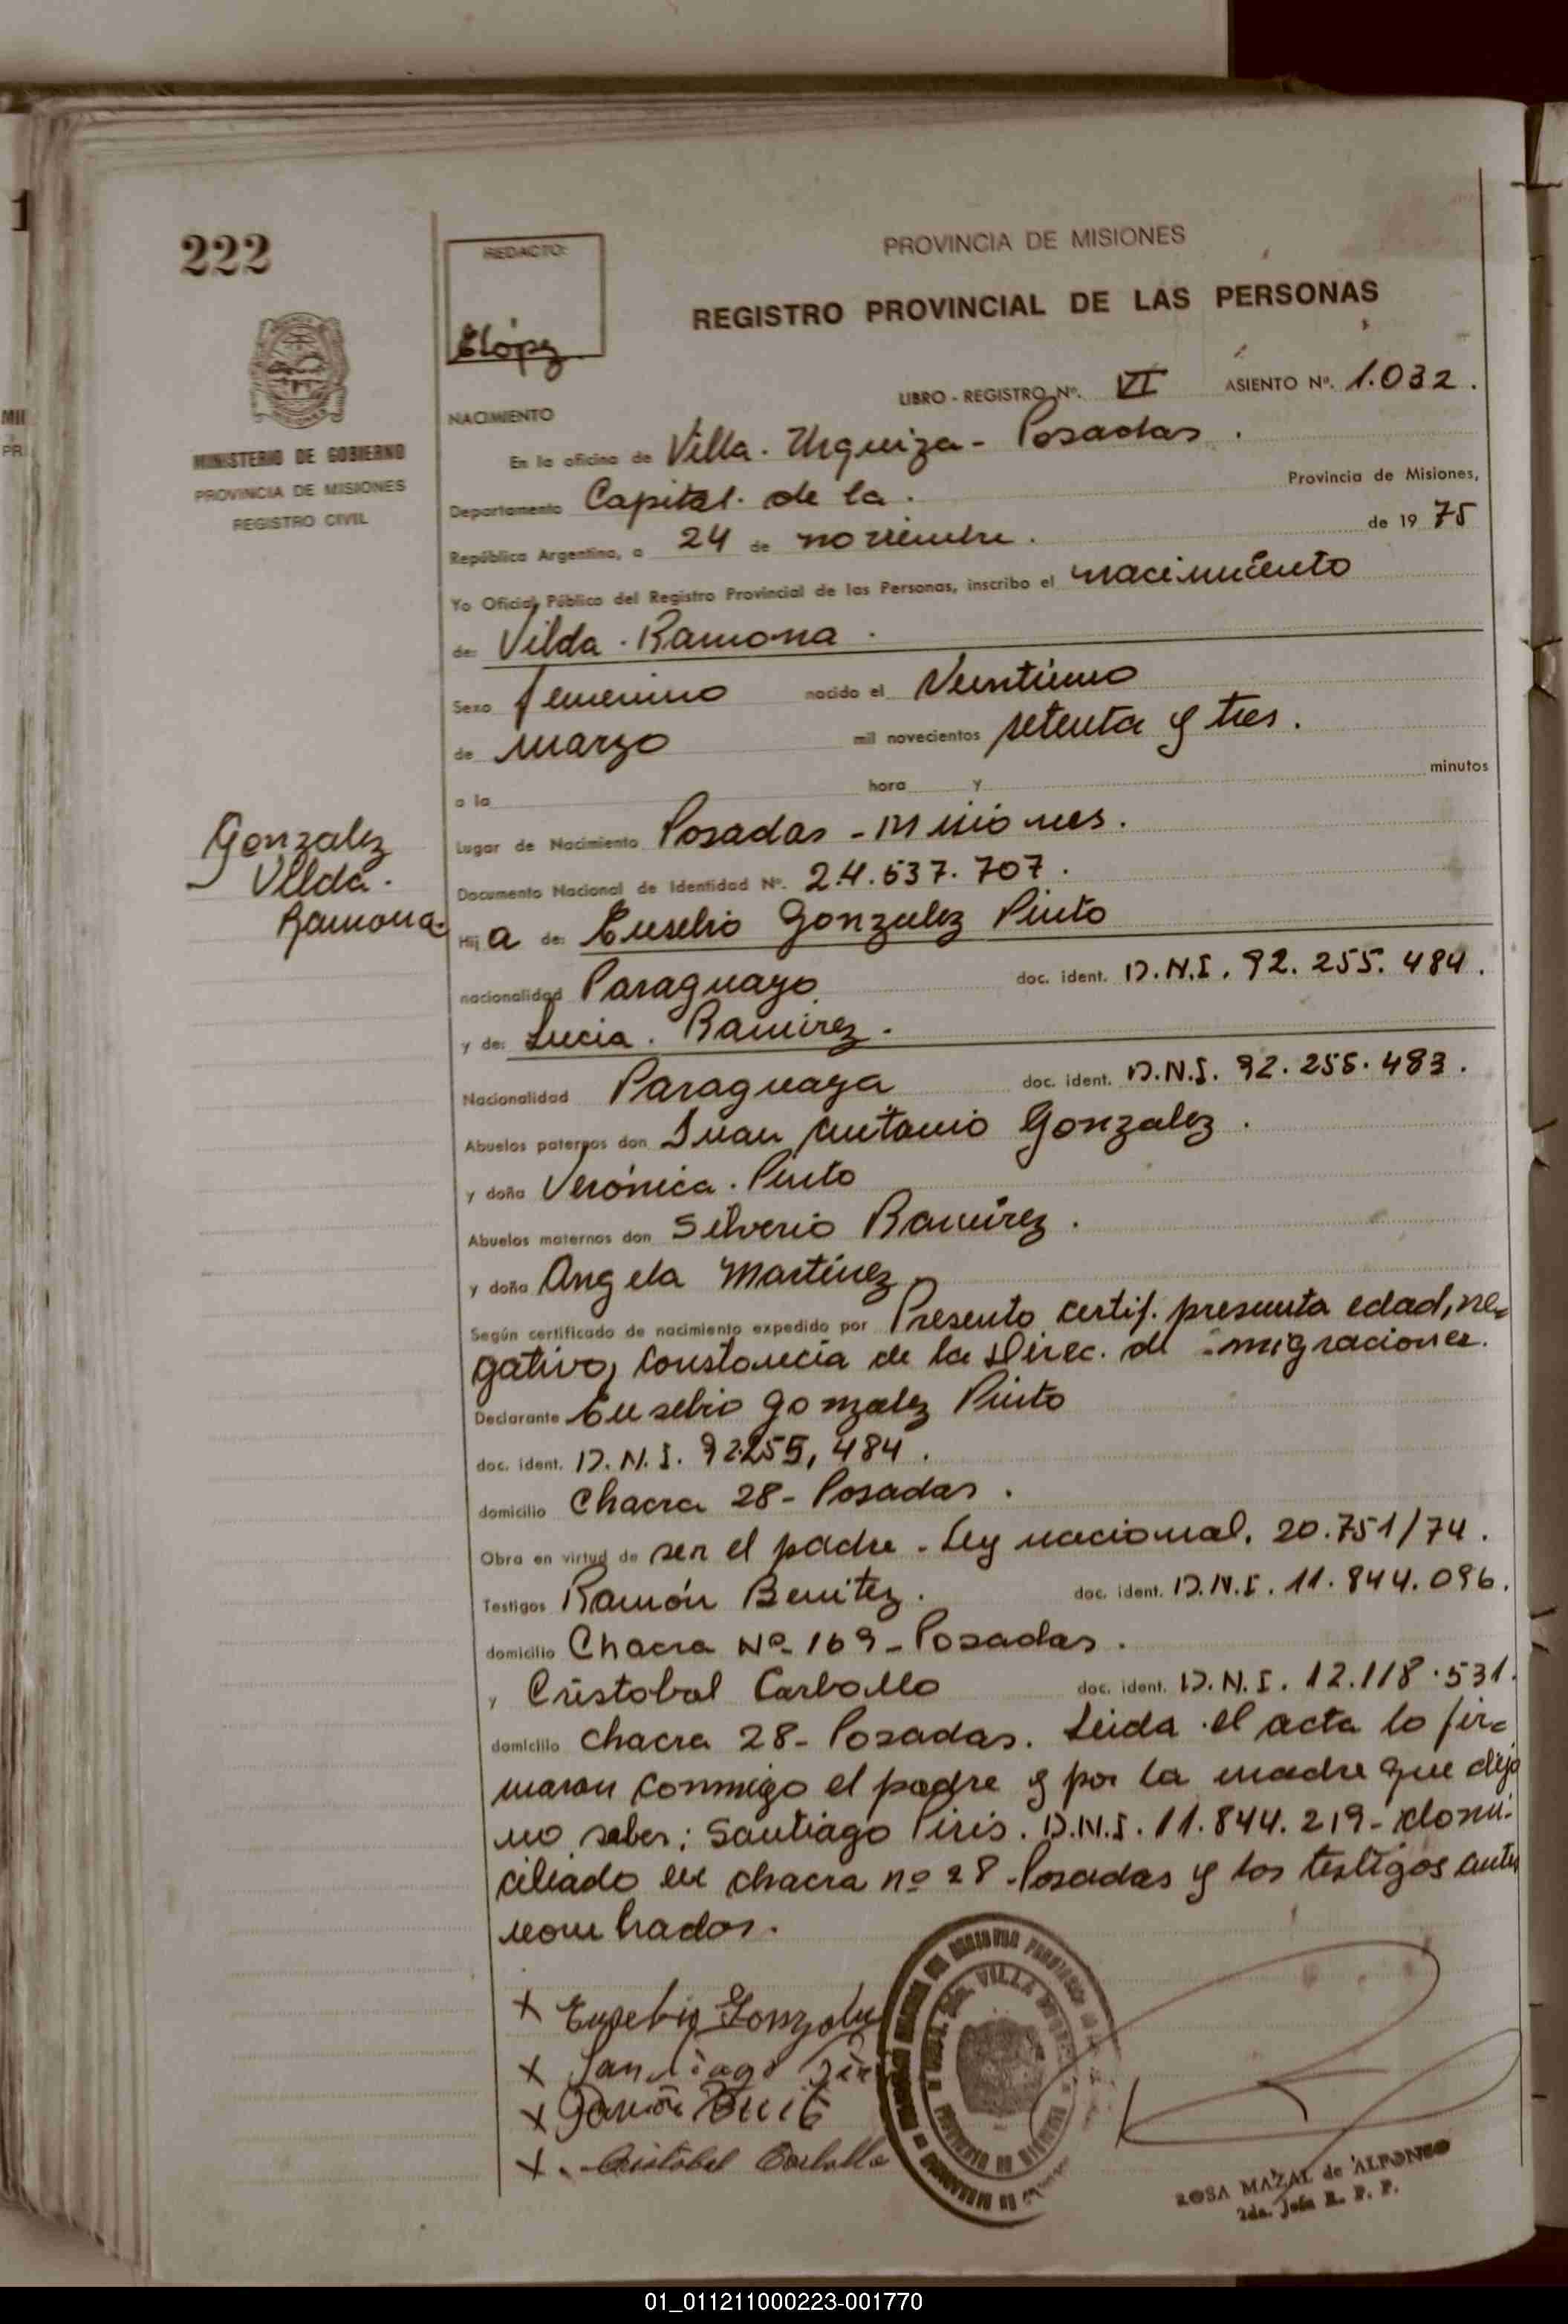 222
REDACTO:
Elópez
PROVINCIA DE MISIONES
REGISTRO PROVINCIAL DE LAS PERSONAS
MINISTERIO DE GOBIERNO
PROVINCIA DE MISIONES
REGISTRO CIVIL
LIBRO - REGISTRO Nº. VI ASIENTO Nº. 1.032.
NACIMIENTO
En la oficina de Villa. Urquiza - Posadas.
Departamento Capital. de la. Provincia de Misiones,
República Argentina, a 24 de noviembre. de 19 75
Yo Oficial Público del Registro Provincial de las Personas, inscribo el nacimiento
de: Vilda. Ramona.
Sexo femenino nacido el Veintiuno
de marzo mil novecientos setenta y tres.
a la hora y minutos
Lugar de Nacimiento Posadas - Misiones.
Gonzalez
Vilda.
Ramona.
Documento Nacional de Identidad Nº. 24.537.707.
Hij a de: Eusebio Gonzalez Pinto
nacionalidad Paraguayo doc. ident. D.N.I. 92.255.484.
y de: Lucia. Ramirez.
Nacionalidad Paraguaya doc. ident. D.N.I. 92.255.483.
Abuelos paternos don Juan Antonio Gonzalez.
y doña Verónica. Pinto
Abuelos maternos don Silverio Ramirez.
y doña Angela Martinez
Según certificado de nacimiento expedido por Presento certif. presunta edad, ne-
gativo, Constancia de la Direc. de migraciones.
Declarante Eusebio Gonzalez Pinto
doc. ident. D.N.I. 92.255,484.
domicilio Chacra 28 - Posadas.
Obra en virtud de ser el padre - Ley nacional. 20.751/74.
Testigos Ramón Benitez. doc. ident. D.N.I. 11.844.096.
domicilio Chacra Nº 169 - Posadas.
y Cristobal Carballo doc. ident. D.N.I. 12.118.531.
domicilio chacra 28 - Posadas. Leida el acta lo fir-
maron conmigo el padre y por la madre que dijo
no saber; Santiago Piris. D.N.I. 11.844.219 - domi-
ciliado en chacra nº 28 - Posadas y los testigos ante
nombrados.
x Eusebio Gonzalez
x Santiago Piris
x Ramón Benit
x. Cristobal Carballo
ROSA MAZAL de ALFONSO
2da. Jefa R. P. P.
01_011211000223-001770